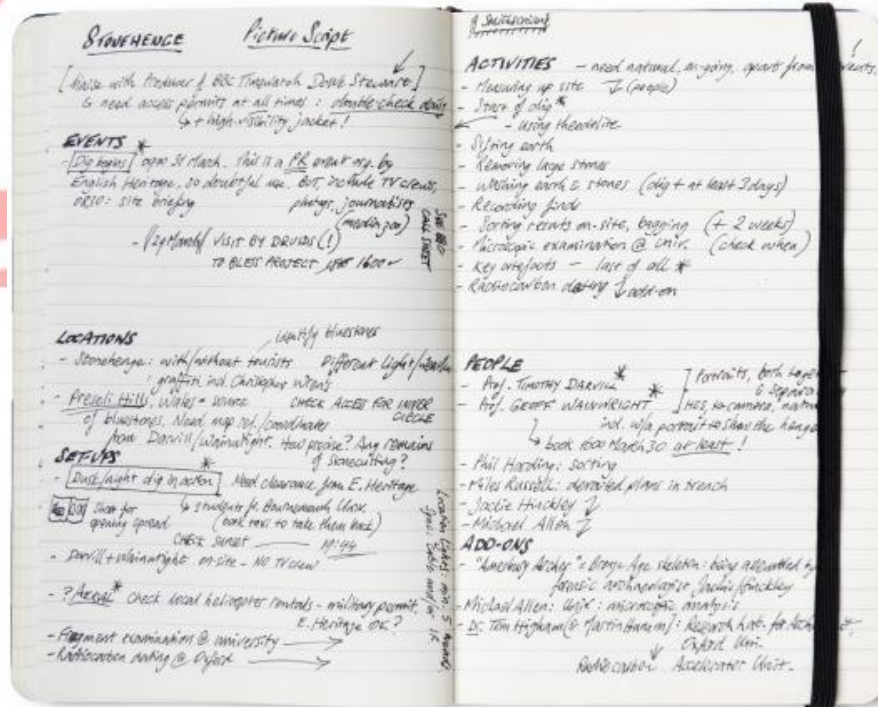 STONEHENGE Picture Script
[ liaise with Producer of BBC Timewatch Dave Stewart ]
& need access permits at all times : double-check daily
↳ + high-visibility jacket !
EVENTS *
- Dig begins 0900 31 March. This is a PR event org. by
English Heritage, so doubtful use. BUT, include TV crews,
ALSO: site briefing photogs, journalists
(media zoo)
- 29 March/ VISIT BY DRUIDS (!)
TO BLESS PROJECT 1600
SEE
CALL SHEET
LOCATIONS identify bluestones
- Stonehenge: with/without tourists Different light/
: graffiti incl. Christopher Wren's
- Preseli Hills, Wales = source CHECK ACCESS FOR INNER
CIRCLE
of bluestones. Need map ref./coordinates
from Darvill/Wainwright. How precise? Any remains
of stonecutting?
SET-UPS *
- Dusk/night dig in action Need clearance from E. Heritage
Shoot for ↳ students fr. Bournemouth Univ.
opening spread (book taxi to take them back)
CHECK sunset — 19:44
- Darvill + Wainwright on-site - NO TV crew
- ? AERIAL * Check local helicopter rentals - military permit,
E. Heritage OK?
- Fragment examination @ university →
- Radiocarbon dating @ Oxford →
Location lights: min. 5
ACTIVITIES - need natural, on-going, apart from events,
- Measuring up site (people)
- Start of dig *
- Using theodolite
- Sifting earth
- Removing large stones
- Washing earth & stones (dig + at least 3 days)
- Recording finds
- Sorting results on-site, bagging (+ 2 weeks)
- Microscopic examination @ Univ. (check when)
- Key artefacts - last of all *
- Radiocarbon dating ↓ add-on
PEOPLE
- Prof. TIMOTHY DARVILL * ] Portraits, both
- Prof. GEOFF WAINWRIGHT * & separate
incl. w/a portrait to show the henge
↳ book 1600 March 30 at least !
- Phil Harding: sorting
- Miles Russell: detailed plans in trench
- Jackie Hinckley ↓
- Michael Allen ↓
ADD-ONS
- "Amesbury Archer" = Bronze Age skeleton: being assembled by
forensic archaeologist Jackie Hinckley
- Michael Allen: Univ: microscopic analysis
- Dr. Tom Higham (& Martin ): Research Lab. for
Oxford Univ.
Radiocarbon Accelerator Unit.